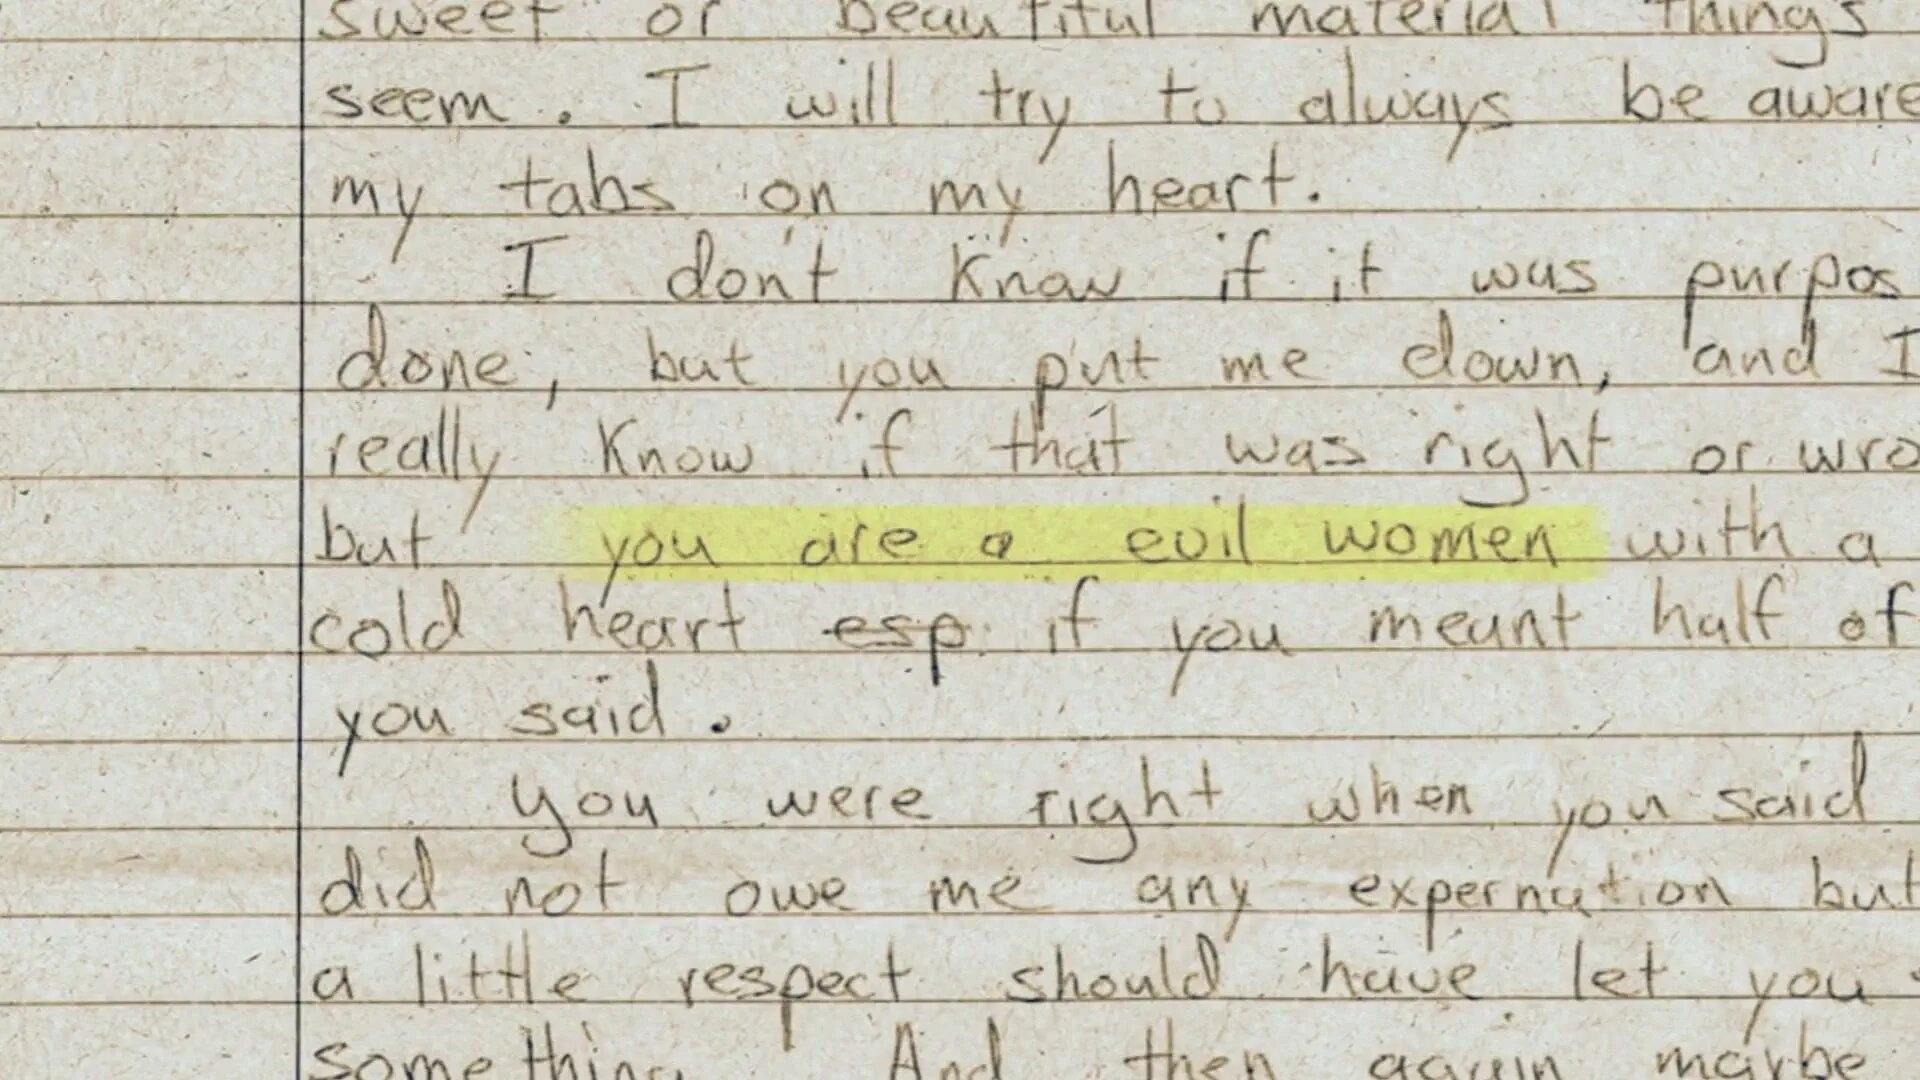 sweet or beautiful material things
seem. I will try to always be aware
my tabs on my heart.
I don't know if it was purpos
done, but you put me down, and I
really know if that was right or wro
but you are a evil women with a
cold heart esp if you meant half of
you said.
you were right when you said
did not owe me any expernation but
a little respect should have let you
something. And then again maybe